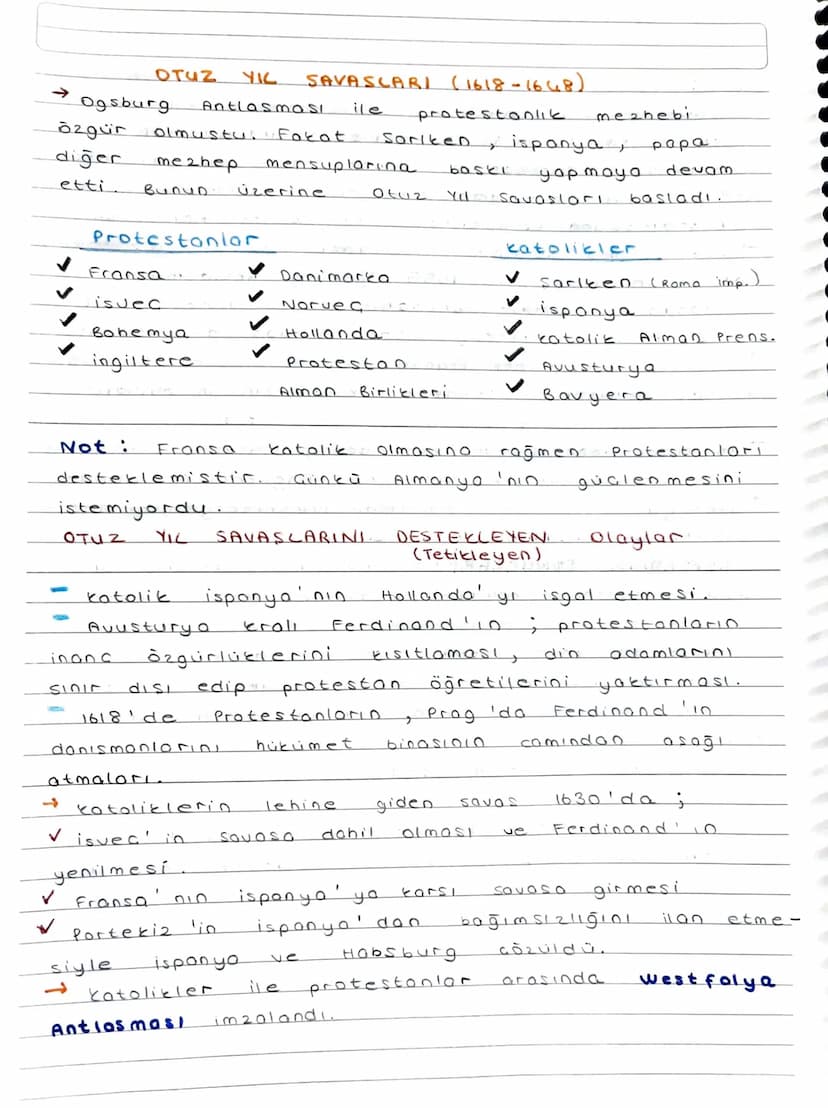 OTUZ YIL SAVASLARI (1618-1648)
→ Ogsburg Antlasması ile protestanlık mezhebi
özgür olmustu. Fakat Sarlken, ispanya, papa
diğer mezhep mensuplarına baskı yapmaya devam
etti. Bunun üzerine Otuz Yıl Savasları basladı.
Protestanlar
✓ Fransa ✓ Danimarka
✓ isvec ✓ Norvec
✓ Bohemya ✓ Hollanda
✓ ingiltere ✓ Protestan
Alman Birlikleri
Katolikler
✓ Sarlken (Roma imp.)
✓ ispanya
✓ Katolik Alman Prens.
✓ Avusturya
✓ Bavyera
Not : Fransa Katolik olmasına rağmen Protestanları
desteklemistir. Cünkü Almanya'nın güclenmesini
istemiyordu.
OTUZ YIL SAVASLARINI DESTEKLEYEN Olaylar
(Tetikleyen)
- Katolik ispanya'nın Hollanda'yı isgal etmesi.
- Avusturya kralı Ferdinand'ın ; protestanların
inanc özgürlüklerini kısıtlaması, din adamlarını
sınır dısı edip protestan öğretilerini yaktırması.
- 1618'de Protestanların, Prag'da Ferdinand'ın
danısmanlarını hükümet binasının camından asağı
atmaları.
→ Katoliklerin lehine giden savas 1630'da ;
✓ isvec'in savasa dahil olması ve Ferdinand'ın
yenilmesi.
✓ Fransa'nın ispanya'ya karsı savasa girmesi
✓ Portekiz'in ispanya'dan bağımsızlığını ilan etme-
siyle ispanya ve Habsburg cözüldü.
→ Katolikler ile protestanlar arasında Westfalya
Antlasması imzalandı.